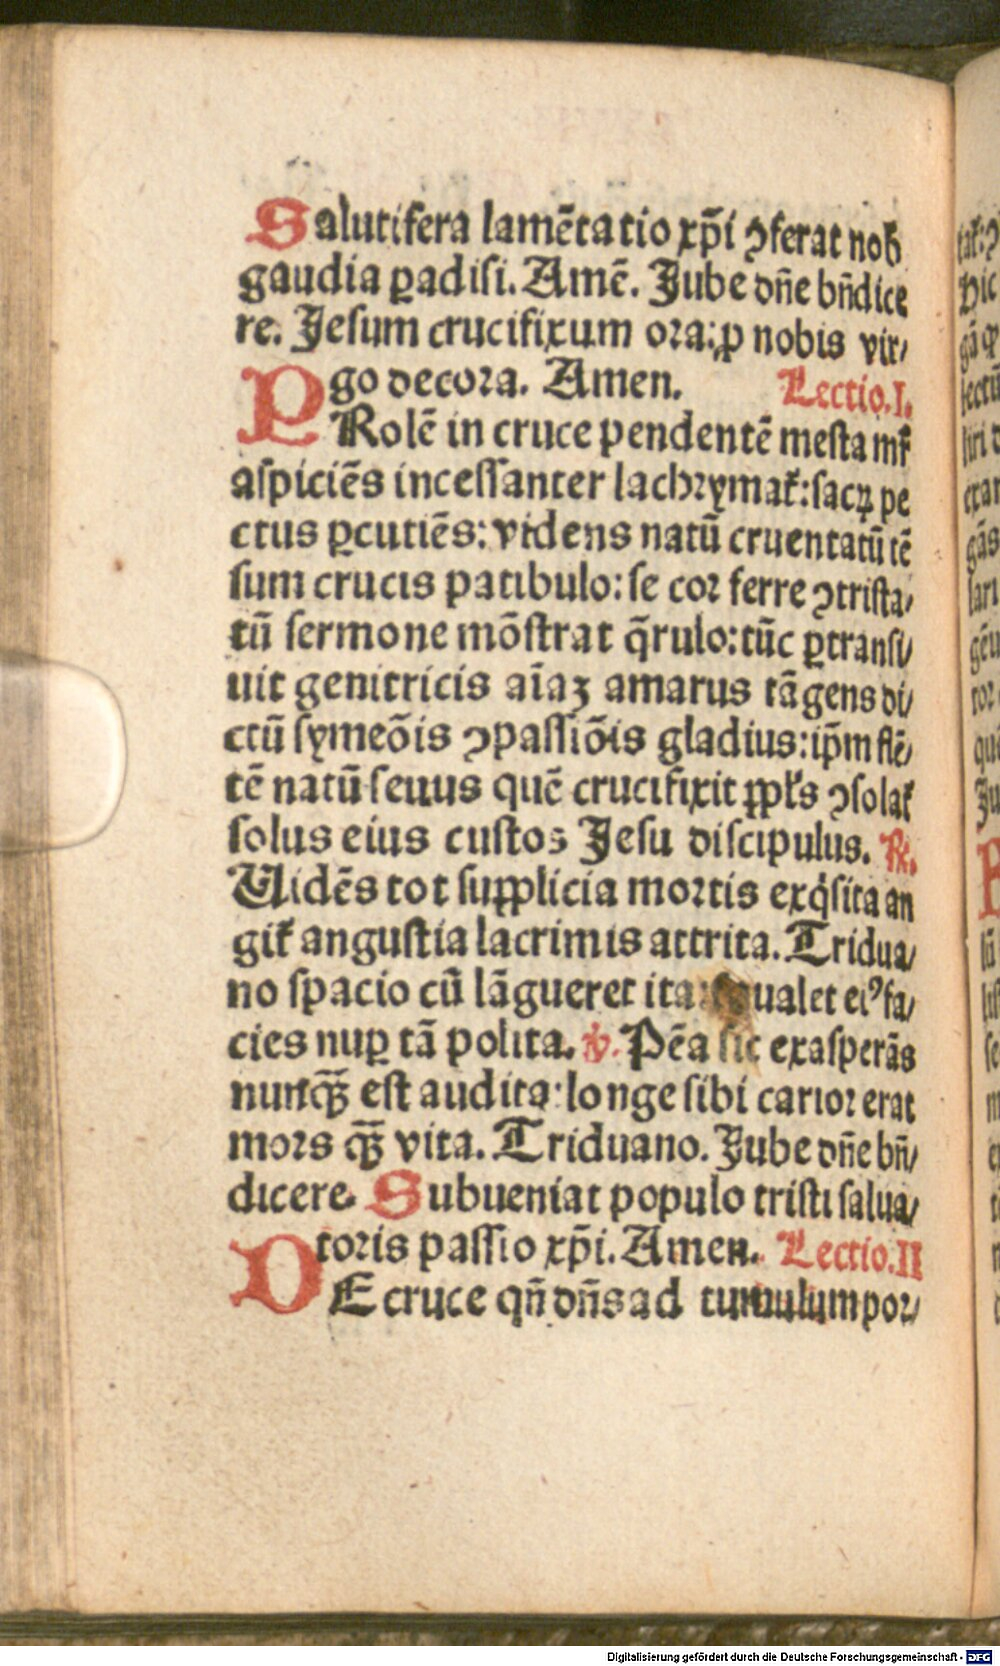 Salutifera lamētatio xp̄i ꝯferat nob̄
gaudia ꝑadisi. Amē. Jube dn̄e bn̄dice
re. Jesum crucifixum ora: ꝓ nobis vir/
go decora. Amen. Lectio. I.
PRolē in cruce pendentē mesta mr̄
aspiciēs incessanter lachrymat̄: sacꝝ pe
ctus ꝑcutiēs: videns natū cruentatū tē
sum crucis patibulo: se cor ferre ꝯtrista/
tū sermone mōstrat q̄rulo: tūc ꝑtransi/
uit genitricis aīaꝫ amarus tāgens di/
ctū symeōis ꝯpassiōis gladius: ip̄m flē/
tē natū seuus quē crucifixit pp̄ls ꝯsolat̄
solus eius custos Jesu discipulus. ℟.
Uidēs tot supplicia mortis exq̇sita an
git̄ angustia lacrimis attrita. Tridua/
no spacio cū lāgueret ita: ualet eiꝰ fa/
cies nuꝑ tā polita. ℣. Pēa sic exasperās
nunꝙ̄ est audita: longe sibi carior erat
mors ꝙ̄ vita. Triduano. Jube dn̄e bn̄/
dicere. Subueniat populo tristi salua/
toris passio xp̄i. Amen. Lectio. II
DE cruce qn̄ dn̄s ad tumulum por/
Digitalisierung gefördert durch die Deutsche Forschungsgemeinschaft - DFG